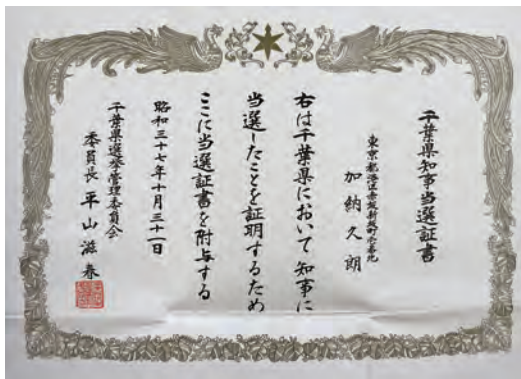 千葉県知事当選証書
東京都港区赤坂新坂町壱番地
加納久朗
右は千葉県において知事に
当選したことを証明するため
ここに当選証書を附与する
昭和三十七年十月三十一日
千葉県選挙管理委員会
委員長 平山滋春